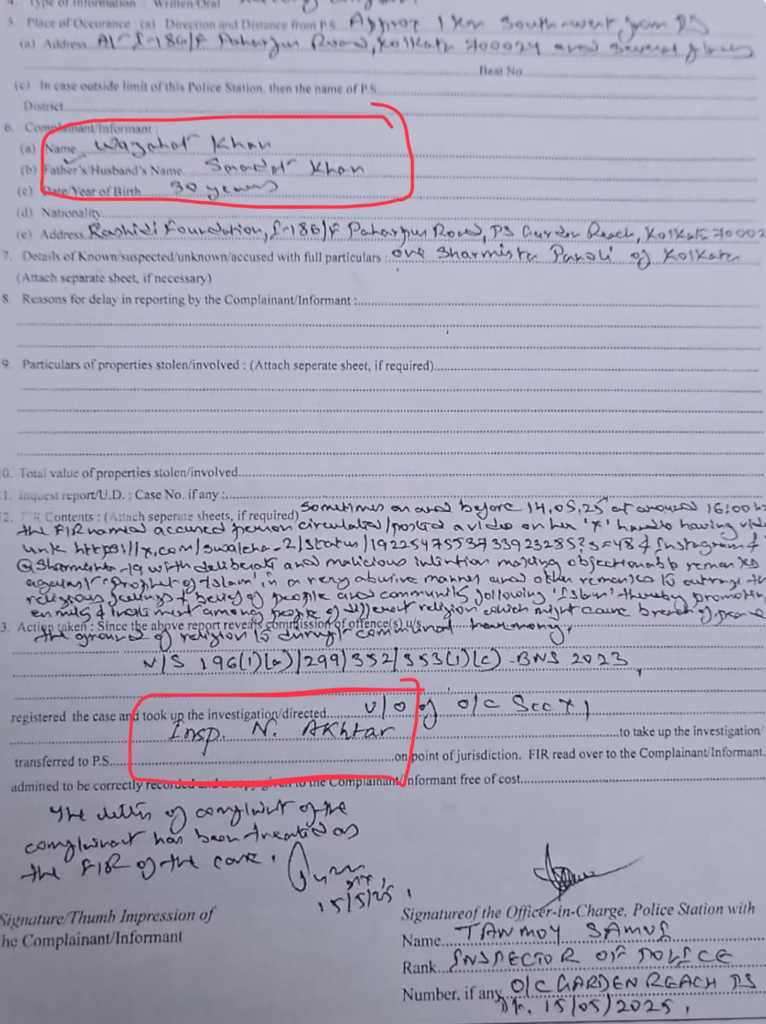 4. Type of Information : Written/Oral
5. Place of Occurance : (a) Direction and Distance from P.S. Approx 1 Km South-west from PS
(a) Address At- J-186/F Paharpur Road, Kolkata 700024 and several places
Beat No
(c) In case outside limit of this Police Station, then the name of P.S.
District
6. Complainant/Informant :
(a) Name Wazahat Khan
(b) Father's/Husband's Name Saadat Khan
(c) Date/Year of Birth 30 years
(d) Nationality
(e) Address Rashidi Foundation, J-186/F Paharpur Road, PS Garden Reach, Kolkata 70002
7. Details of Known/suspected/unknown/accused with full particulars : one Sharmista Panoli of Kolkata
(Attach separate sheet, if necessary)
8. Reasons for delay in reporting by the Complainant/Informant :
9. Particulars of properties stolen/involved : (Attach seperate sheet, if required)
0. Total value of properties stolen/involved
1. Inquest report/U.D. : Case No. if any :
2. FIR Contents : (Attach seperate sheets, if required) Sometimes on and before 14.05.25 at around 16:00 h
the FIR named accused person circulated/posted a video on her 'X' handle having
link https://x.com/swaleha_2/status/1922547553733923285?s=48 & Instagram
@Sharmishta-19 with deliberate and malicious intention making objectionable remarks
against 'Prophet of Islam', in a very abusive manner and other remarks to outrage th
religious feelings & beliefs of people and community following 'Islam' thereby promotin
enmity & incitment among people of different religion which might cause breach of peace
3. Action taken : Since the above report reveals commission of offence(s) u/s
the ground of religion & disrupt communal harmony,
U/S 196(1)(a)/299/352/353(1)(c) BNS 2023,
registered the case and took up the investigation/directed U/O of O/C Sec
Insp. N. Akhtar to take up the investigation
transferred to P.S. on point of jurisdiction. FIR read over to the Complainant/Informant.
admitted to be correctly recorded and a copy given to the Complainant/Informant free of cost
The letter of complaint of the
complainant has been treated as
the FIR of the case.
15/5/25.
Signature/Thumb Impression of
he Complainant/Informant
Signatureof the Officer-in-Charge, Police Station with
Name TANMOY SAMUI
Rank INSPECTOR OF POLICE
Number, if any O/C GARDEN REACH PS
Dt. 15/05/2025.